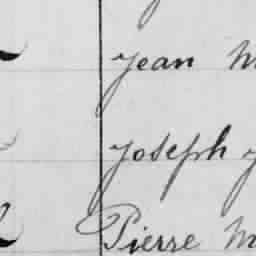 Jean M
Joseph J
Pierre M